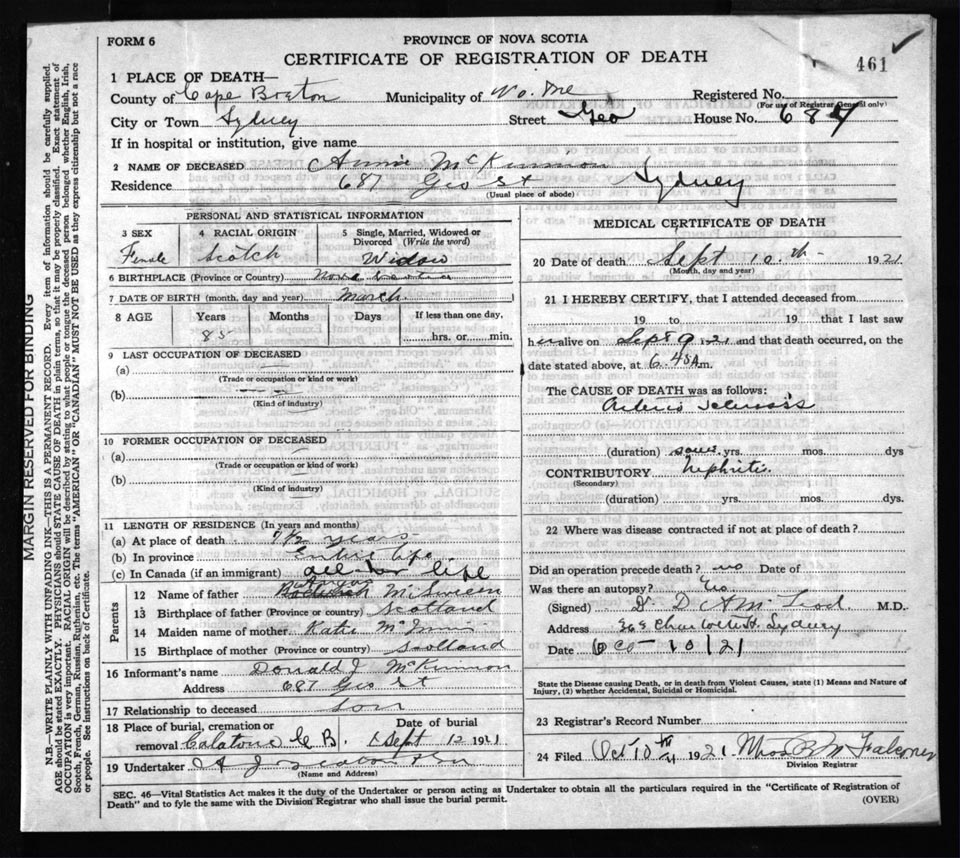 FORM 6
PROVINCE OF NOVA SCOTIA
CERTIFICATE OF REGISTRATION OF DEATH
461
1 PLACE OF DEATH—
County of Cape Breton Municipality of Registered No.
(For use of Registrar General only)
City or Town Sydney Street Geo House No. 687
If in hospital or institution, give name
2 NAME OF DECEASED Annie McKinnon
Residence 687 Geo St Sydney
(Usual place of abode)
PERSONAL AND STATISTICAL INFORMATION
3 SEX Female
4 RACIAL ORIGIN Scotch
5 Single, Married, Widowed or Divorced (Write the word) Widow
6 BIRTHPLACE (Province or Country) Nova Scotia
7 DATE OF BIRTH (month, day and year) March
8 AGE Years Months Days If less than one day,
85 hrs. or min.
9 LAST OCCUPATION OF DECEASED
(a) —
(Trade or occupation or kind or work)
(b) — —
(Kind of industry)
10 FORMER OCCUPATION OF DECEASED
(a) —
(Trade or occupation or kind or work)
(b) —
(Kind of industry)
11 LENGTH OF RESIDENCE (In years and months)
(a) At place of death 7½ years
(b) In province Entire life
(c) In Canada (if an immigrant) all her life
Parents
12 Name of father McSween
13 Birthplace of father (Province or country) Scotland
14 Maiden name of mother Katie McInnis
15 Birthplace of mother (Province or country) Scotland
16 Informant's name Donald J McKinnon
Address 687 Geo St
17 Relationship to deceased son
18 Place of burial, cremation or Date of burial
removal C B. Sept 12 1921
19 Undertaker A J
(Name and Address)
MEDICAL CERTIFICATE OF DEATH
20 Date of death Sept 10th 1921
(Month, day and year)
21 I HEREBY CERTIFY, that I attended deceased from
19 to 19 that I last saw
her alive on Sept 9 1921 and that death occurred, on the
date stated above, at 6.45 A m.
The CAUSE OF DEATH was as follows:
Arterio Sclerosis
(duration) some yrs. mos. dys
CONTRIBUTORY Nephritis
(Secondary)
(duration) yrs. mos. dys
22 Where was disease contracted if not at place of death?
Did an operation precede death? no Date of
Was there an autopsy?
(Signed) D A McLeod M.D.
Address Charlotte St. Sydney
Date Oct 10/21
State the Disease causing Death, or in death from Violent Causes, state (1) Means and Nature of
Injury, (2) whether Accidental, Suicidal or Homicidal.
23 Registrar's Record Number
24 Filed Oct 10th 1921 Miss B M Falconer
Division Registrar
SEC. 46—Vital Statistics Act makes it the duty of the Undertaker or person acting as Undertaker to obtain all the particulars required in the "Certificate of Registration of
Death" and to fyle the same with the Division Registrar who shall issue the burial permit.
(OVER)
MARGIN RESERVED FOR BINDING
N.B.—WRITE PLAINLY WITH UNFADING INK—THIS IS A PERMANENT RECORD. Every item of information should be carefully supplied.
AGE should be stated EXACTLY. PHYSICIANS should STATE CAUSE OF DEATH in plain terms, so that it may be properly classified. Exact statement of
OCCUPATION is very important. RACIAL ORIGIN will be described by stating to what people or tongue the deceased person belonged whether English, Irish,
Scotch, French, German, Russian, Ruthenian, etc. The terms "AMERICAN" OR "CANADIAN" MUST NOT BE USED as they express citizenship but not a race
or people. See instructions on back of Certificate.